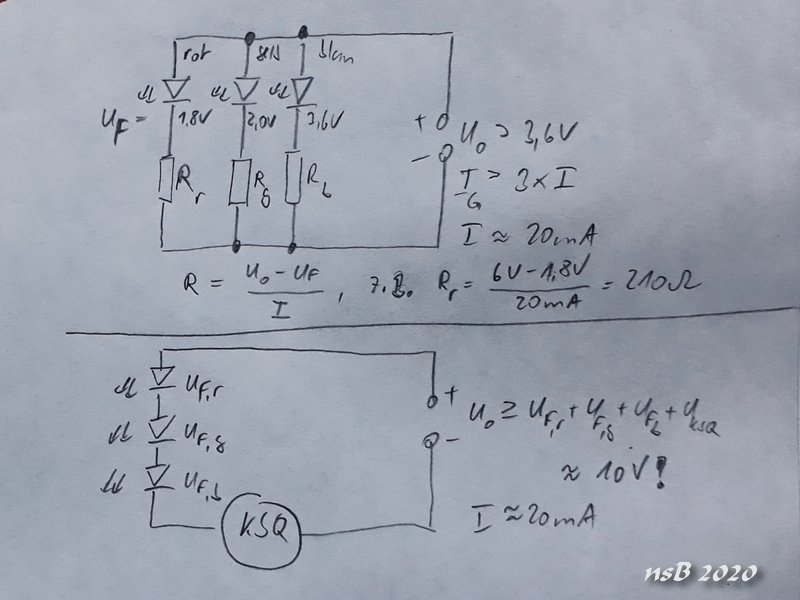 rot gelb blau
U_F = 1,8V 2,0V 3,6V
R_r R_g R_b
+
−
U_0 > 3,6V
I_G > 3 x I
I ≈ 20mA
R = (U_0 − U_F) / I , z.B. R_r = (6V − 1,8V) / 20mA = 210Ω
U_F,r
U_F,g
U_F,b
KSQ
+
−
U_0 ≥ U_F,r + U_F,g + U_F,b + U_KSQ
≈ 10V!
I ≈ 20mA
nsB 2020